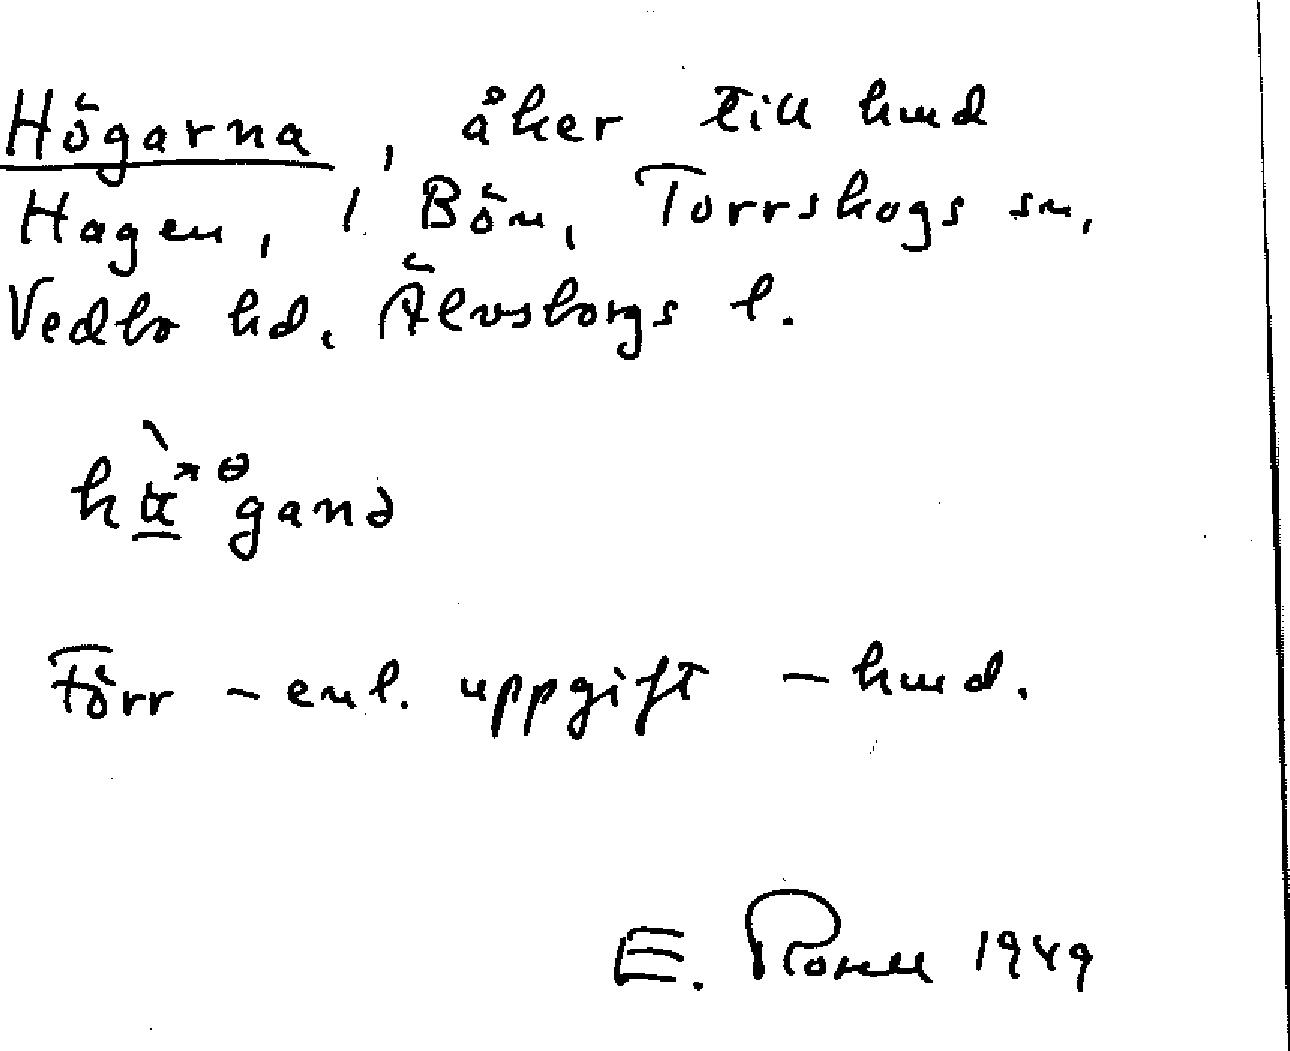 Högarna, åker till hmd
Hagen, 1 Bön, Torrskogs sn,
Vedbo hd. Älvsborgs l.
Förr - enl. uppgift - hmd.
E. 1949